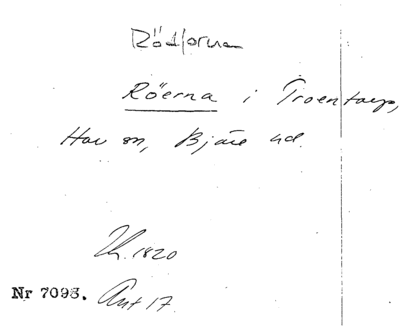 Rödjorna
Röerna i Troentorp,
Hov sn, Bjäre hd.
Lh. 1820
Nr 7093. Ant 17